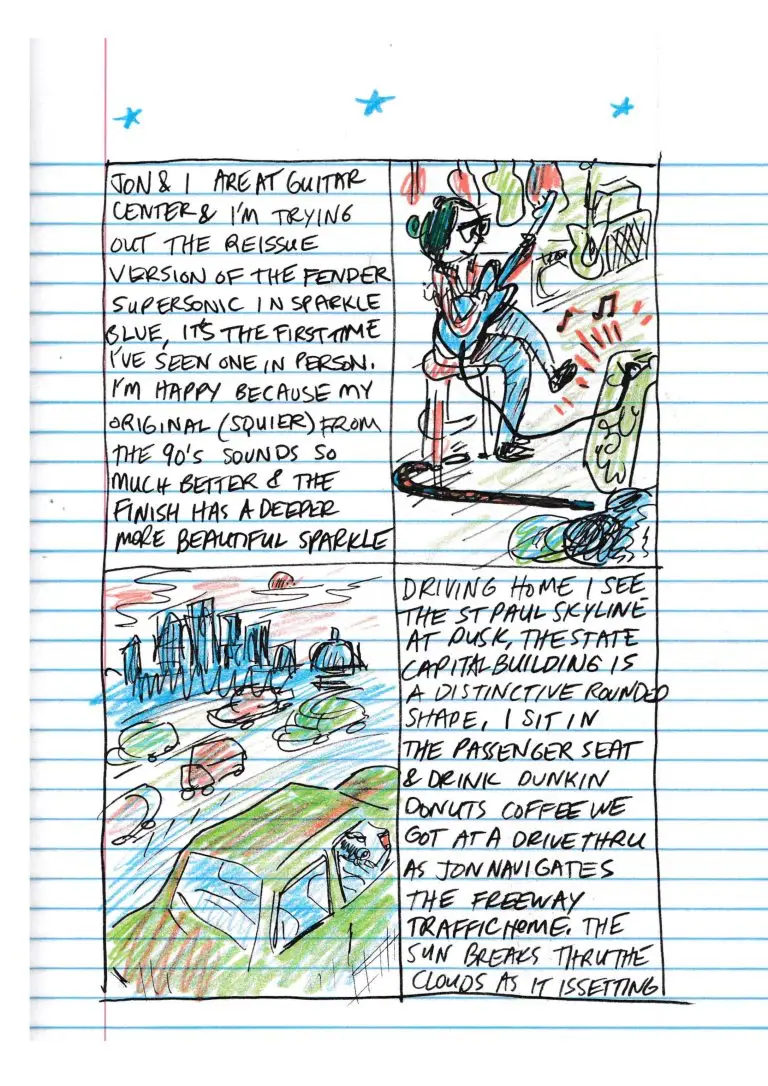 JON & I ARE AT GUITAR
CENTER & I'M TRYING
OUT THE REISSUE
VERSION OF THE FENDER
SUPERSONIC IN SPARKLE
BLUE, IT'S THE FIRST TIME
I'VE SEEN ONE IN PERSON.
I'M HAPPY BECAUSE MY
ORIGINAL (SQUIER) FROM
THE 90'S SOUNDS SO
MUCH BETTER & THE
FINISH HAS A DEEPER
MORE BEAUTIFUL SPARKLE
DRIVING HOME I SEE
THE ST PAUL SKYLINE
AT DUSK, THE STATE
CAPITAL BUILDING IS
A DISTINCTIVE ROUNDED
SHAPE, I SIT IN
THE PASSENGER SEAT
& DRINK DUNKIN
DONUTS COFFEE WE
GOT AT A DRIVE THRU
AS JON NAVIGATES
THE FREEWAY
TRAFFIC HOME. THE
SUN BREAKS THRU THE
CLOUDS AS IT IS SETTING